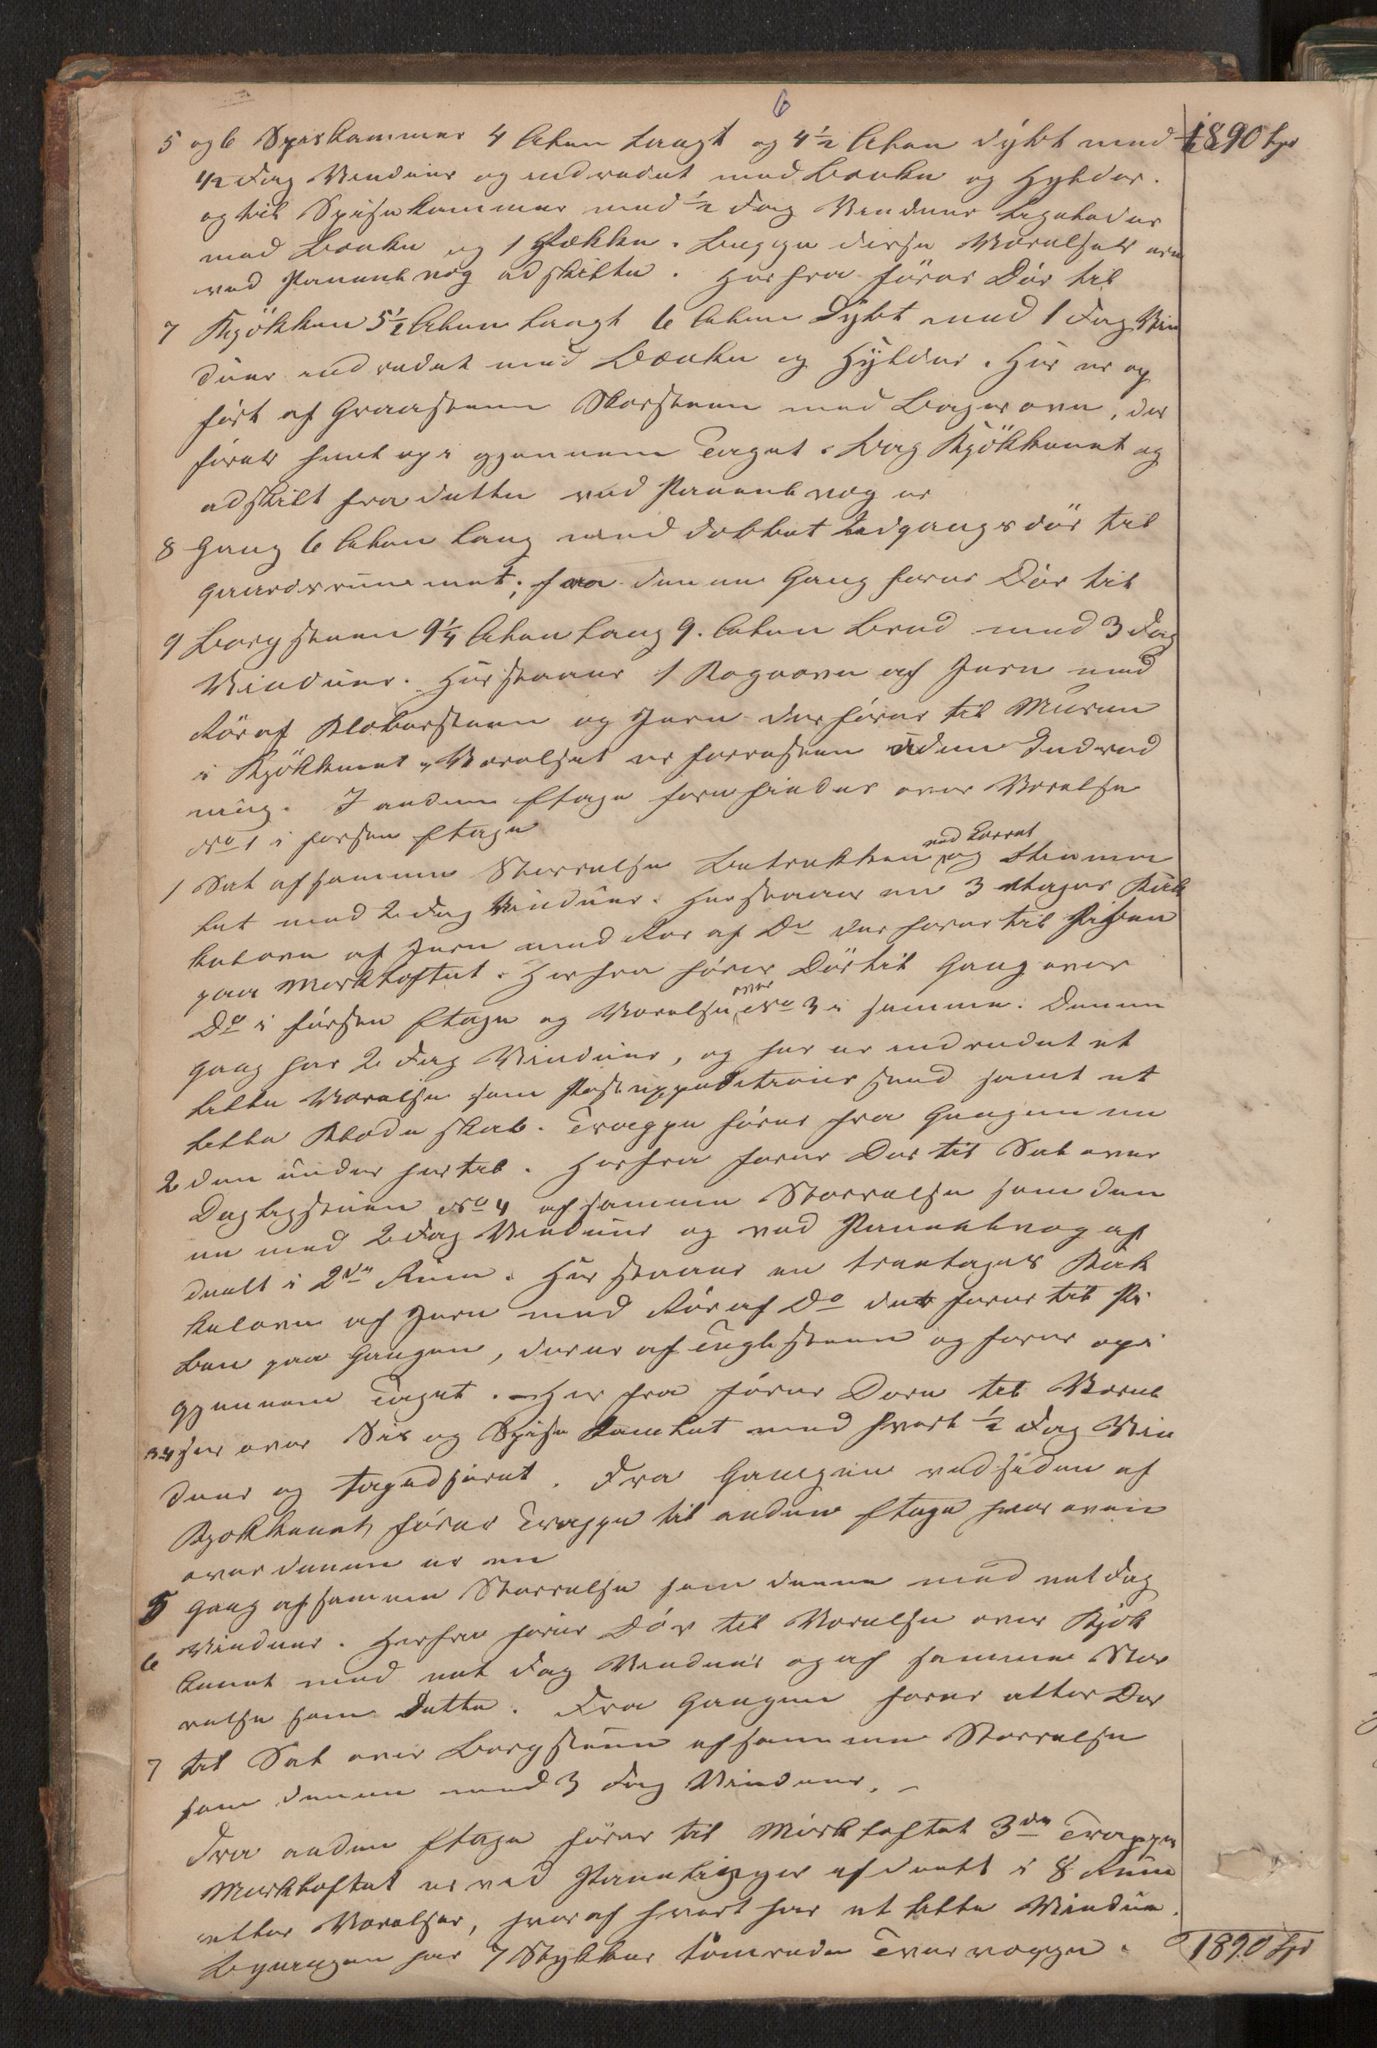 6
5 og 6 Spiskammer 4 Alen Langt og 4½ Alen dybt med 1890 Spd
½ Fag Vinduer og indredet med Bænke og Hylder.
og til Spisekammer med ½ Fag Vinduer ligeledes
med Bænke og 1 Række. Begge disse Værelser ere
ved Panelvæg adskilte. Herfra fører Dör til
7 Kjökken 5½ Alen langt 6 Alen Dybt med 1 Fag Vin
duer indredet med Bænke og Hylder. Her er op
ført af Graasteen Skorsteen med Bagerovn, der
fører hed op i gjennem Taget. Bag Kjökkenet og
adskilt fra dette ved Panelvæg er
8 Gang 6 Alen lang med dobbet Udgangsdör til
Gaardsrummet; fra denne Gang förer Dör til
9 Borgstuen 9¼ Alen lang 9. Alen Bred med 3 Fag
Vinduer. Her staaer 1 Kogeovn af Jern med
Rör af Klæbersteen og Jern der förer til Muren
i Kjökkenet. Værelset er forresten uden Indred
ning. I anden Etage forefindes over Værelse
No 1 i første Etage
1 Sal af samme Størrelse Betrukken ved Lærret og Himmel
let med 2 Fag Vinduer. Her staaer en 3 etages Kak
kelovn af Jern med Rör af Do der fører til Piben
paa Mørkloftet. Herfra förer Dör til Gang over
Do i første Etage og Værelse over No 3 i samme. Denne
Gang har 2 Fag Vinduer, og her er indredet et
lidte Værelse som Postexpeditions sted samt et
lidte Klædeskab. Trappe förer fra Gangen
den under hertil. Herfra förer Dör til Sal over
2 Dagligstuen No 4 af samme Størrelse som den
ne med 2 Fag Vinduer og ved Panelvæg af
deelt i 2de Rum. Her staaer en treetages Kak
kelovn af Jern med Rör af Do der förer til Pi
ben paa Gangen, der er af Teglsteen og förer op i
gjennem Taget. Her fra förer Döre til Værel
3-4 ser over Sis og Spise Kamret med hvert ½ Fag Vin
duer og tapedseret. Fra Gangen ved siden af
Kjøkkenet förer Trappe til anden Etage hvor oven
over denne er en
5 Gang af samme Størrelse som denne med eet Fag
6 Vinduer. Herfra förer Dör til Værelse over Kjök
kenet med eet Fag Vinduer og af samme Stör
relse som Dette. Fra Gangen förer atter Dör
7 til Sal over Borgstuen af samme Størrelse
som denne med 3 Fag Vinduer.
Fra anden Etage förer til Mörkloftet 3de Trapper
Mørkloftet er ved Panelinger afdeelt i 8 Rum
eller Værelser, hvoraf hvert har et lidte Vindue.
Bygningen har 7 Stykker tömrede Tvervægge. 1890 Spd